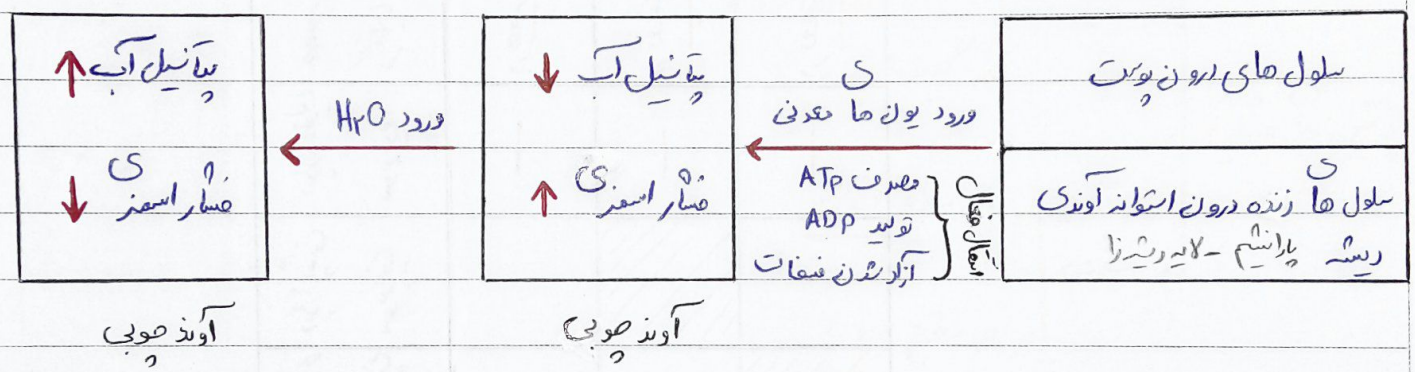 سلول های درون پوست
سلول های زنده درون استوانه آوندی
ریشه پارانشیم - لایه ریشه زا
ورود یون های معدنی
انتقال فعال
مصرف ATP
تولید ADP
آزاد شدن فسفات
پتانسیل آب ↓
فشار اسمزی ↑
آوند چوبی
ورود H۲O
پتانسیل آب ↑
فشار اسمزی ↓
آوند چوبی